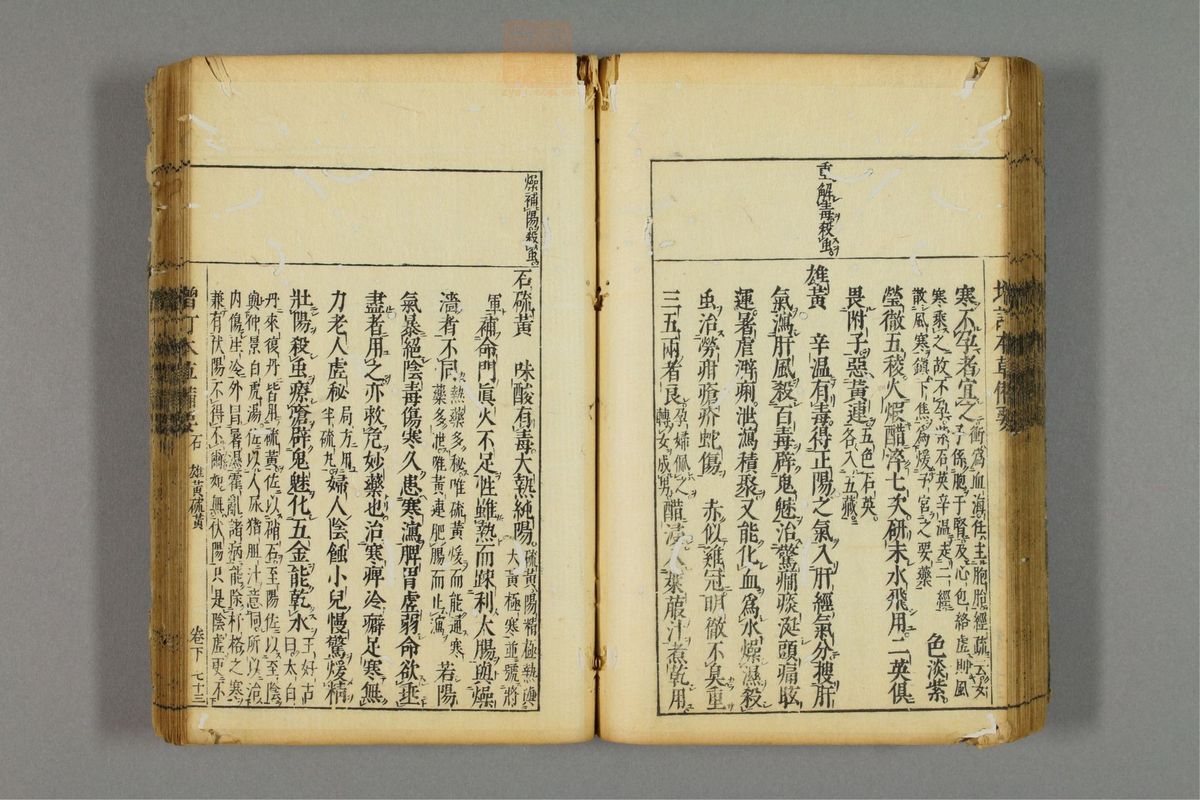 重解毒殺蟲
寒不孕者宜之衝為血海任主胞胎經疏云女
子係胞于腎及心包絡虛則風
寒乘之故不孕紫石英辛溫走二經
散風寒鎮下焦為煖子宮之要藥
色淡紫
瑩徹五稜火煆醋淬七次研末水飛用二英俱
畏附子惡黃連五色石英
各入五藏
雄黃 辛温有毒得正陽之氣入肝經氣分搜肝
氣瀉肝風殺百毒辟鬼魅治驚癎痰涎頭痛眩
運暑瘧澼痢泄瀉積聚又能化血為水燥濕殺
虫治勞疳瘡疥蛇傷 赤似雞冠明徹不臭重
三五兩者良孕婦佩之
轉女成男醋浸入萊菔汁煮乾用
燥補陽殺蟲
石硫黃 味酸有毒大熱純陽硫黃陽精極熱與
大黃極寒並號將
軍補命門眞火不足性雖熱而疎利大腸與燥
濇者不同熱藥多秘唯硫黃煖而能通寒
藥多泄唯黃連肥腸而止瀉若陽
氣暴絕陰毒傷寒久患寒瀉脾胃虛弱命欲垂
盡者用之亦救危妙藥也治寒痺冷癖足寒無
力老人虛秘局方用
半硫丸婦人陰蝕小兒慢驚煖精
壯陽殺虫療瘡辟鬼魅化五金能乾汞王好古
曰太白
丹來復丹皆用硫黃佐以補石至陽佐以至陰
與仲景白虎湯佐以人尿猪胆汁意同所以治
內傷生冷外冒暑濕霍亂諸病能除扞格之寒
兼有伏陽不得不爾如無伏陽只是陰虛更不
石 雄黃硫黃
卷下 七十三